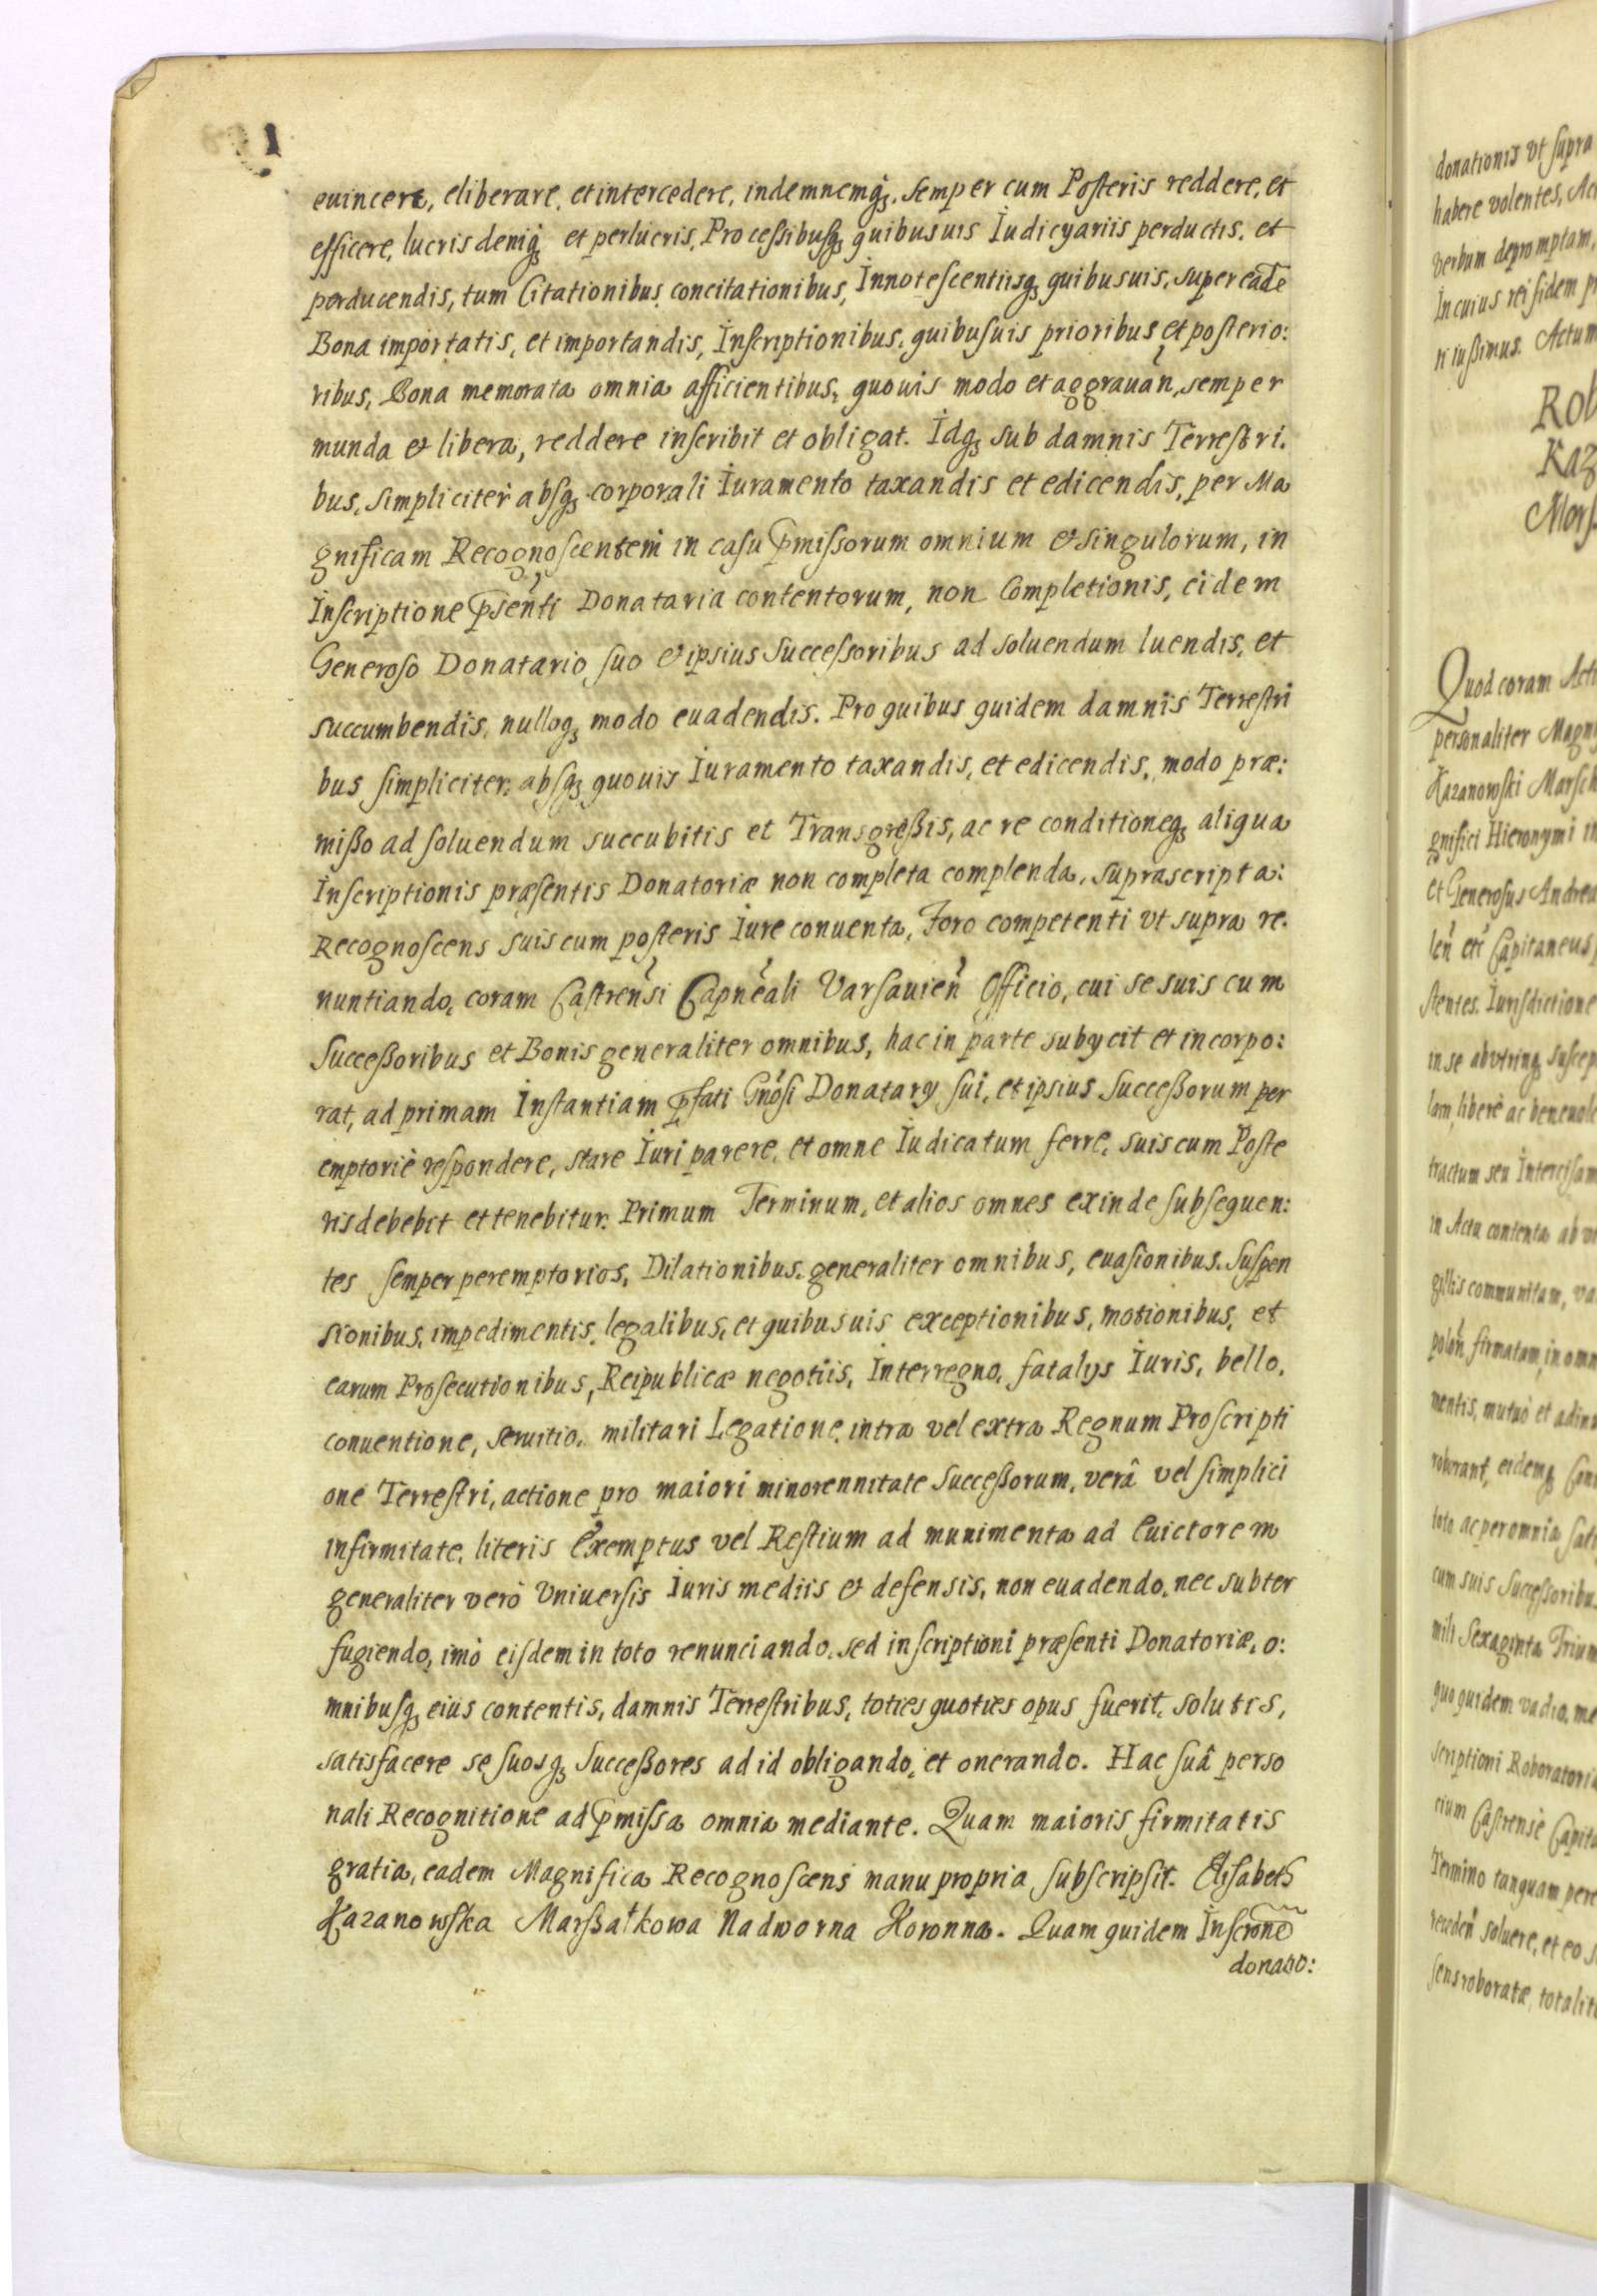 euincere, eliberare, et intercedere, indemnemq3, semper cum Posteris reddere, et
efficere, lucris deniq3 et perlucris, Processibusq3 quibusuis Iudicyariis perductis, et
perducendis, tum Citationibus, concitationibus, Innotescentiisq3 quibusuis, super eadē
Bona importatis, et importandis, Inscriptionibus, quibusuis prioribus et posterio:
ribus, Bona memorata omnia afficientibus, quouis modo et aggrauañ, semper
munda et libera, reddere inscribit et obligat. Idq3 sub damnis Terrestri.
bus, simpliciter absq3 corporali Iuramento taxandis et edicendis, per Ma
gnificam Recognoscentem in casu p̄missorum omnium et singulorum, in
Inscriptione p̄senti Donataria contentorum, non Completionis, eidem
Generoso Donatario suo et ipsius Successoribus ad soluendum luendis, et
succumbendis, nulloq3 modo euadendis. Pro quibus quidem damnis Terrestri
bus simpliciter absq3 quouis Iuramento taxandis, et edicendis, modo præ:
misso ad soluendum succubitis et Transgressis, ac re conditioneq3 aliqua
Inscriptionis præsentis Donatoriæ non completa complenda, suprascripta:
Recognoscens suis cum posteris Iure conuenta, Foro competenti vt supra re.
nuntiando, coram Castrensi Capneali Varsauień Officio, cui se suis cum
Successoribus et Bonis generaliter omnibus, hac in parte subycit et incorpo:
rat, ad primam Instantiam p̄fati Gnosi Donatary sui, et ipsius Successorum per
emptoriè respondere, stare Iuri parere, et omne Iudicatum ferre, suis cum Poste
ris debebit et tenebitur. Primum Terminum, et alios omnes exinde subsequen:
tes semper peremptorios, Dilationibus, generaliter omnibus, euasionibus, Suspen
sionibus, impedimentis, legalibus, et quibusuis exceptionibus, motionibus, et
earum Prosecutionibus, Reipublicæ negotiis, Interregno, fatalys Iuris, bello,
conuentione, seruitio, militari Legatione, intra vel extra Regnum Proscripti
one Terrestri, actione pro maiori minorennitate Successorum, verâ vel simplici
infirmitate, literis Exemptus vel Restium ad munimenta ad Euictorem
generaliter verò Vniuersis Iuris mediis et defensis, non euadendo, nec subter
fugiendo, imò eisdem in toto renunciando, sed inscriptioni præsenti Donatoriæ, o:
mnibusq3 eius contentis, damnis Terrestribus, toties quoties opus fuerit, solutis,
satisfacere se suosq3 Successores ad id obligando, et onerando. Hac suâ perso
nali Recognitione ad p̄missa omnia mediante. Quam maioris firmitatis
gratia, eadem Magnifica Recognoscens manu propria subscripsit. Elisabeth
Kazanowska Marszałkowa Nadworna Koronna. Quam quidem Inscrōnē
donato:
donationis vt supra
habere volentes, Ac
verbum depromptam,
In cuius rei fidem p
ri iussimus. Actum
Rob
Kaz
Mars
Quod coram Act
personaliter Magn
Kazanowski Marsch
gnifici Hieronymi i
et Generosus Andrea
leñ etc Capitaneus
stentes. Iurisdictione
in se abvtrinq3 suscep
lam, liberè ac beneuol
tractum seu Intercisam
in Actu contenta ab v
gillis communitam, va
poloñ firmatam, in omn
mentis, mutuò et adinu
roborant, eidemq3 Con
toto ac per omnia sati
cum suis Successoribu
mili Sexaginta Trium
quo quidem vadio, me
scriptioni Roboratori
cium Castrense Capita
Termino tanquam pere
recedeñ soluere, et eo s
sens roboratæ, totalit